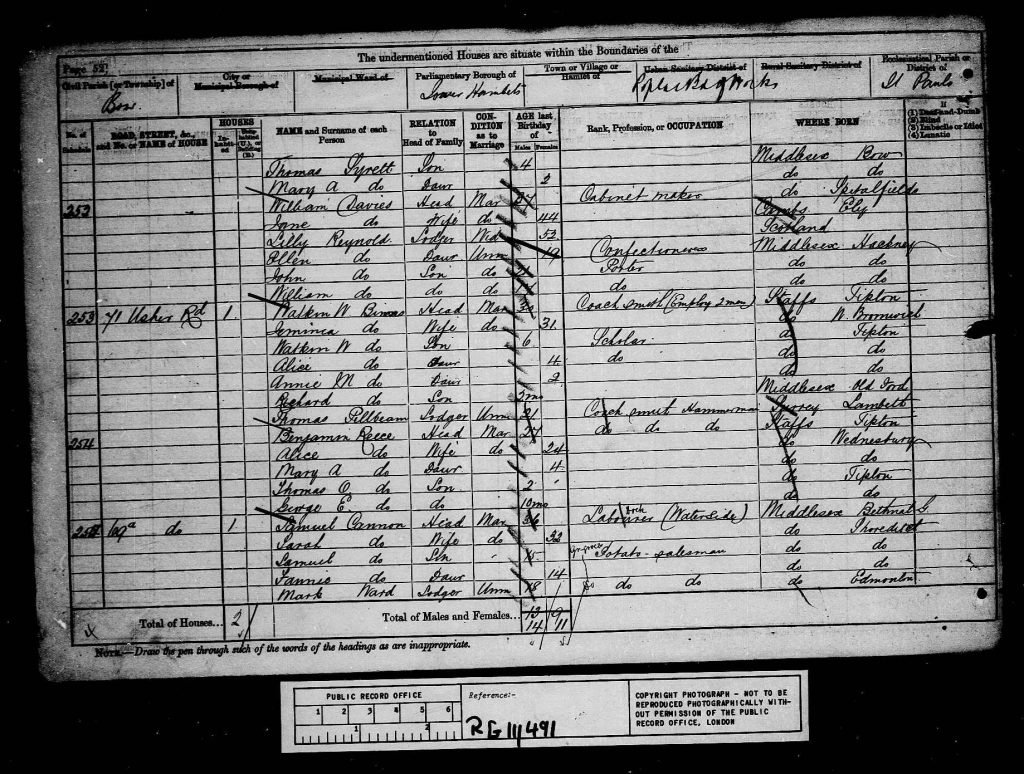 The undermentioned Houses are situate within the Boundaries of the
Page 52]
Civil Parish [or Township] of
Bow
City or
Municipal Borough of
Municipal Ward of
Parliamentary Borough of
Tower Hamlets
Town or Village or
Hamlet of
Urban Sanitary District of
Rural Sanitary District of
Ecclesiastical Parish or
District of
St Pauls
No. of
Schedule
ROAD, STREET, &c.,
and No. or NAME of HOUSE
HOUSES
In-
habit-
ed
Unin-
habited
(U.), or
Building
(B.)
NAME and Surname of each
Person
RELATION
to
Head of Family
CON-
DITION
as to
Marriage
AGE last
Birthday
of
Males
Females
Rank, Profession, or OCCUPATION
WHERE BORN
If
(1) Deaf-and-Dumb
(2) Blind
(3) Imbecile or Idiot
(4) Lunatic
Thomas Tyrett Son 4 Middlesex Bow
Mary A do Daur 2 do do
253 William Davies Head Mar Cabinet maker do Spitalfields
Jane do Wife do 44 Cambs Ely
Lilly Reynold Lodger Wid 53 Scotland
Ellen do Daur Unm 19 Middlesex Hackney
John do Son do Porter do do
William do do do do do do
253 71 Usher Rd 1 Watkin W Head Mar Coach smith (Employ 2 men) Staffs Tipton
Jemima do Wife do 31 do W. Bromwich
Watkin W do Son 6 Scholar do Tipton
Alice do Daur 4 do do do
Annie M do Daur 2 do do
Richard do Son 2 mo Middlesex Old Ford
Thomas Pillbeam Lodger Unm 21 Coach smith Hammerman Surrey Lambeth
254 Benjamin Reece Head Mar 27 do do do Staffs Tipton
Alice do Wife do 24 do Wednesbury
Mary A do Daur 4 do do
Thomas O do Son 2 do Tipton
George E do do 10 mo do do
69a do 1 Samuel Cannon Head Mar 36 Dock Labourer (Waterside) Middlesex Bethnal G.
Sarah do Wife do 32 do Shoreditch
Samuel do Son 15 Potato salesman do do
Fannie do Daur 14 do do
Mark Ward Lodger Unm 18 do do do Edmonton
Total of Houses... 2
Total of Males and Females...
13 9
14 11
NOTE.—Draw the pen through such of the words of the headings as are inappropriate.
PUBLIC RECORD OFFICE
1 2 3 4 5 6
1 2
Reference:-
RG 11/491
COPYRIGHT PHOTOGRAPH - NOT TO BE
REPRODUCED PHOTOGRAPHICALLY WITH-
OUT PERMISSION OF THE PUBLIC
RECORD OFFICE, LONDON